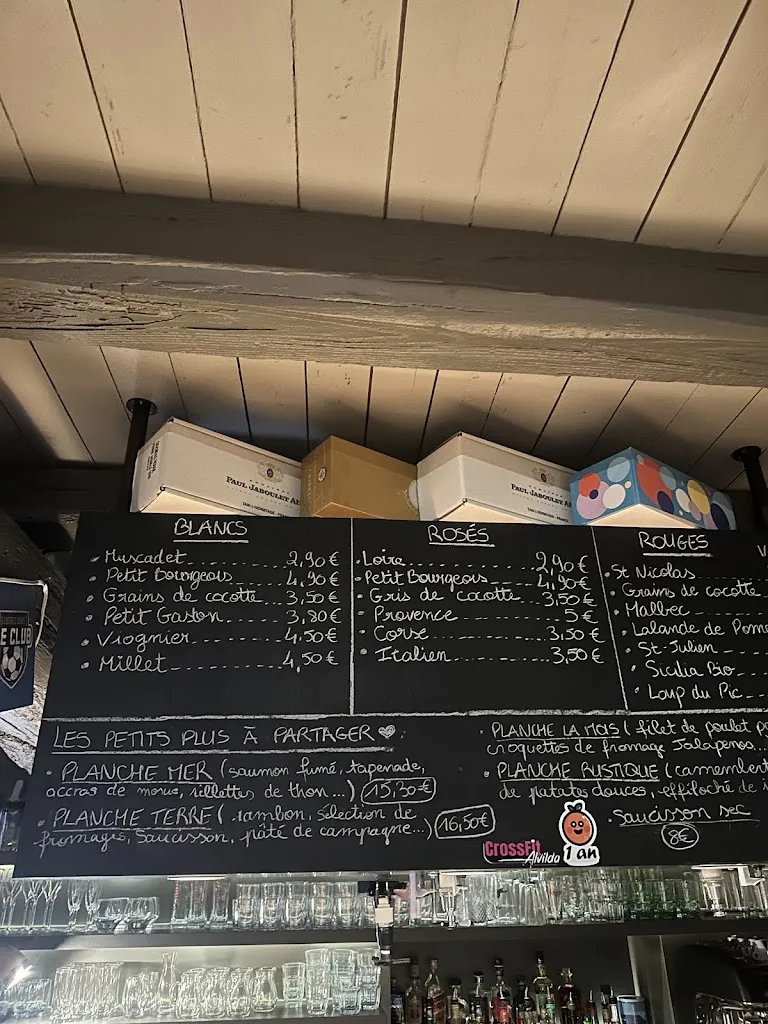 PAUL JABOULET AÎ
PAUL JABOULET
BLANCS
• Muscadet 2,90€
• Petit Bourgeois 4,90€
• Grains de cocotte 3,50€
• Petit Gaston 3,80€
• Viognier 4,50€
• Millet 4,50€
ROSÉS
• Loire 2,90€
• Petit Bourgeois 4,90€
• Gris de Cocotte 3,50€
- Provence 5€
- Corse 3,50€
• Italien 3,50€
ROUGES
V
• St Nicolas
• Grains de cocotte
• Malbec
• Lalande de Pome
• St-Julien
• Sicilia Bio
• Loup du Pic
E CLUB
LES PETITS PLUS À PARTAGER
• PLANCHE MER (saumon fumé, tapenade,
accras de morue, rillettes de thon...) 15,30€
• PLANCHE TERRE (jambon, sélection de
fromages, Saucisson, pâté de campagne...) 16,50€
• PLANCHE LA MOIS (filet de poulet p
croquettes de fromage Jalapenos...
• PLANCHE RUSTIQUE (camembert
de patates douces, effiloché de
• Saucisson sec
8€
CrossFit
Alvilda
1 an